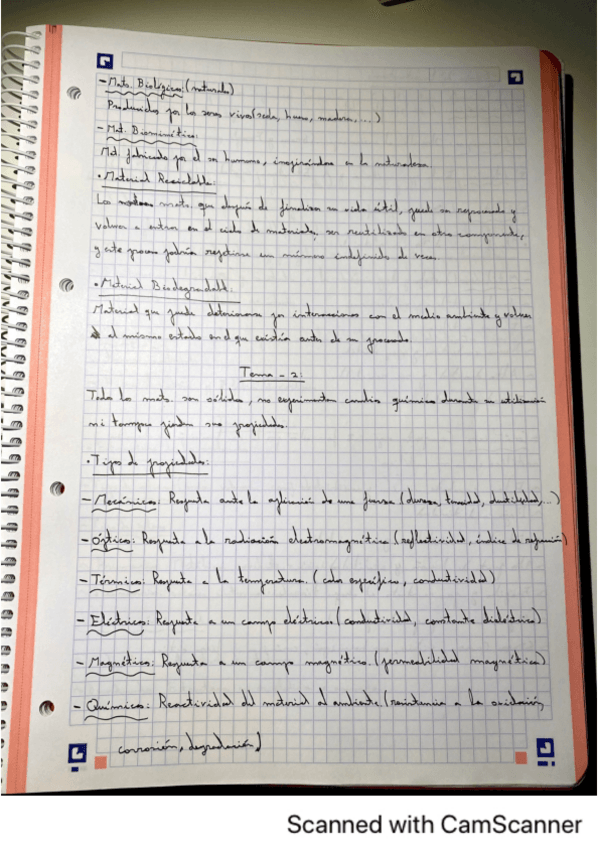 - Mats. Biológicos: (naturales)
Producidos por los seres vivos (seda, hueso, madera, ...)
- Mat. Biomimético:
Mat. fabricado por el ser humano, inspirándose en la naturaleza.
• Material Reciclable:
Los mats. que después de finalizar su vida útil, puede ser reprocesado y
volver a entrar en el ciclo de materiales, ser reutilizado en otro componente,
y este proceso podría repetirse un número indefinido de veces.
• Material Biodegradable:
Material que puede deteriorarse por interacciones con el medio ambiente y volver
al mismo estado en el que existía antes de su procesado.
Tema - 2:
Todos los mats. son sólidos, no experimentan cambio químico durante su utilización
ni tampoco pierden sus propiedades.
• Tipos de propiedades:
- Mecánicas: Respuesta ante la aplicación de una fuerza (dureza, tenacidad, ductilidad, ...)
- Ópticas: Respuesta a la radiación electromagnética (reflectividad, índice de refracción)
- Térmicas: Respuesta a la temperatura. (calor específico, conductividad)
- Eléctricas: Respuesta a un campo eléctrico. (conductividad, constante dieléctrica)
- Magnéticas: Respuesta a un campo magnético. (permeabilidad magnética)
- Químicas: Reactividad del material al ambiente (resistencia a la oxidación,
corrosión, degradación)
Scanned with CamScanner